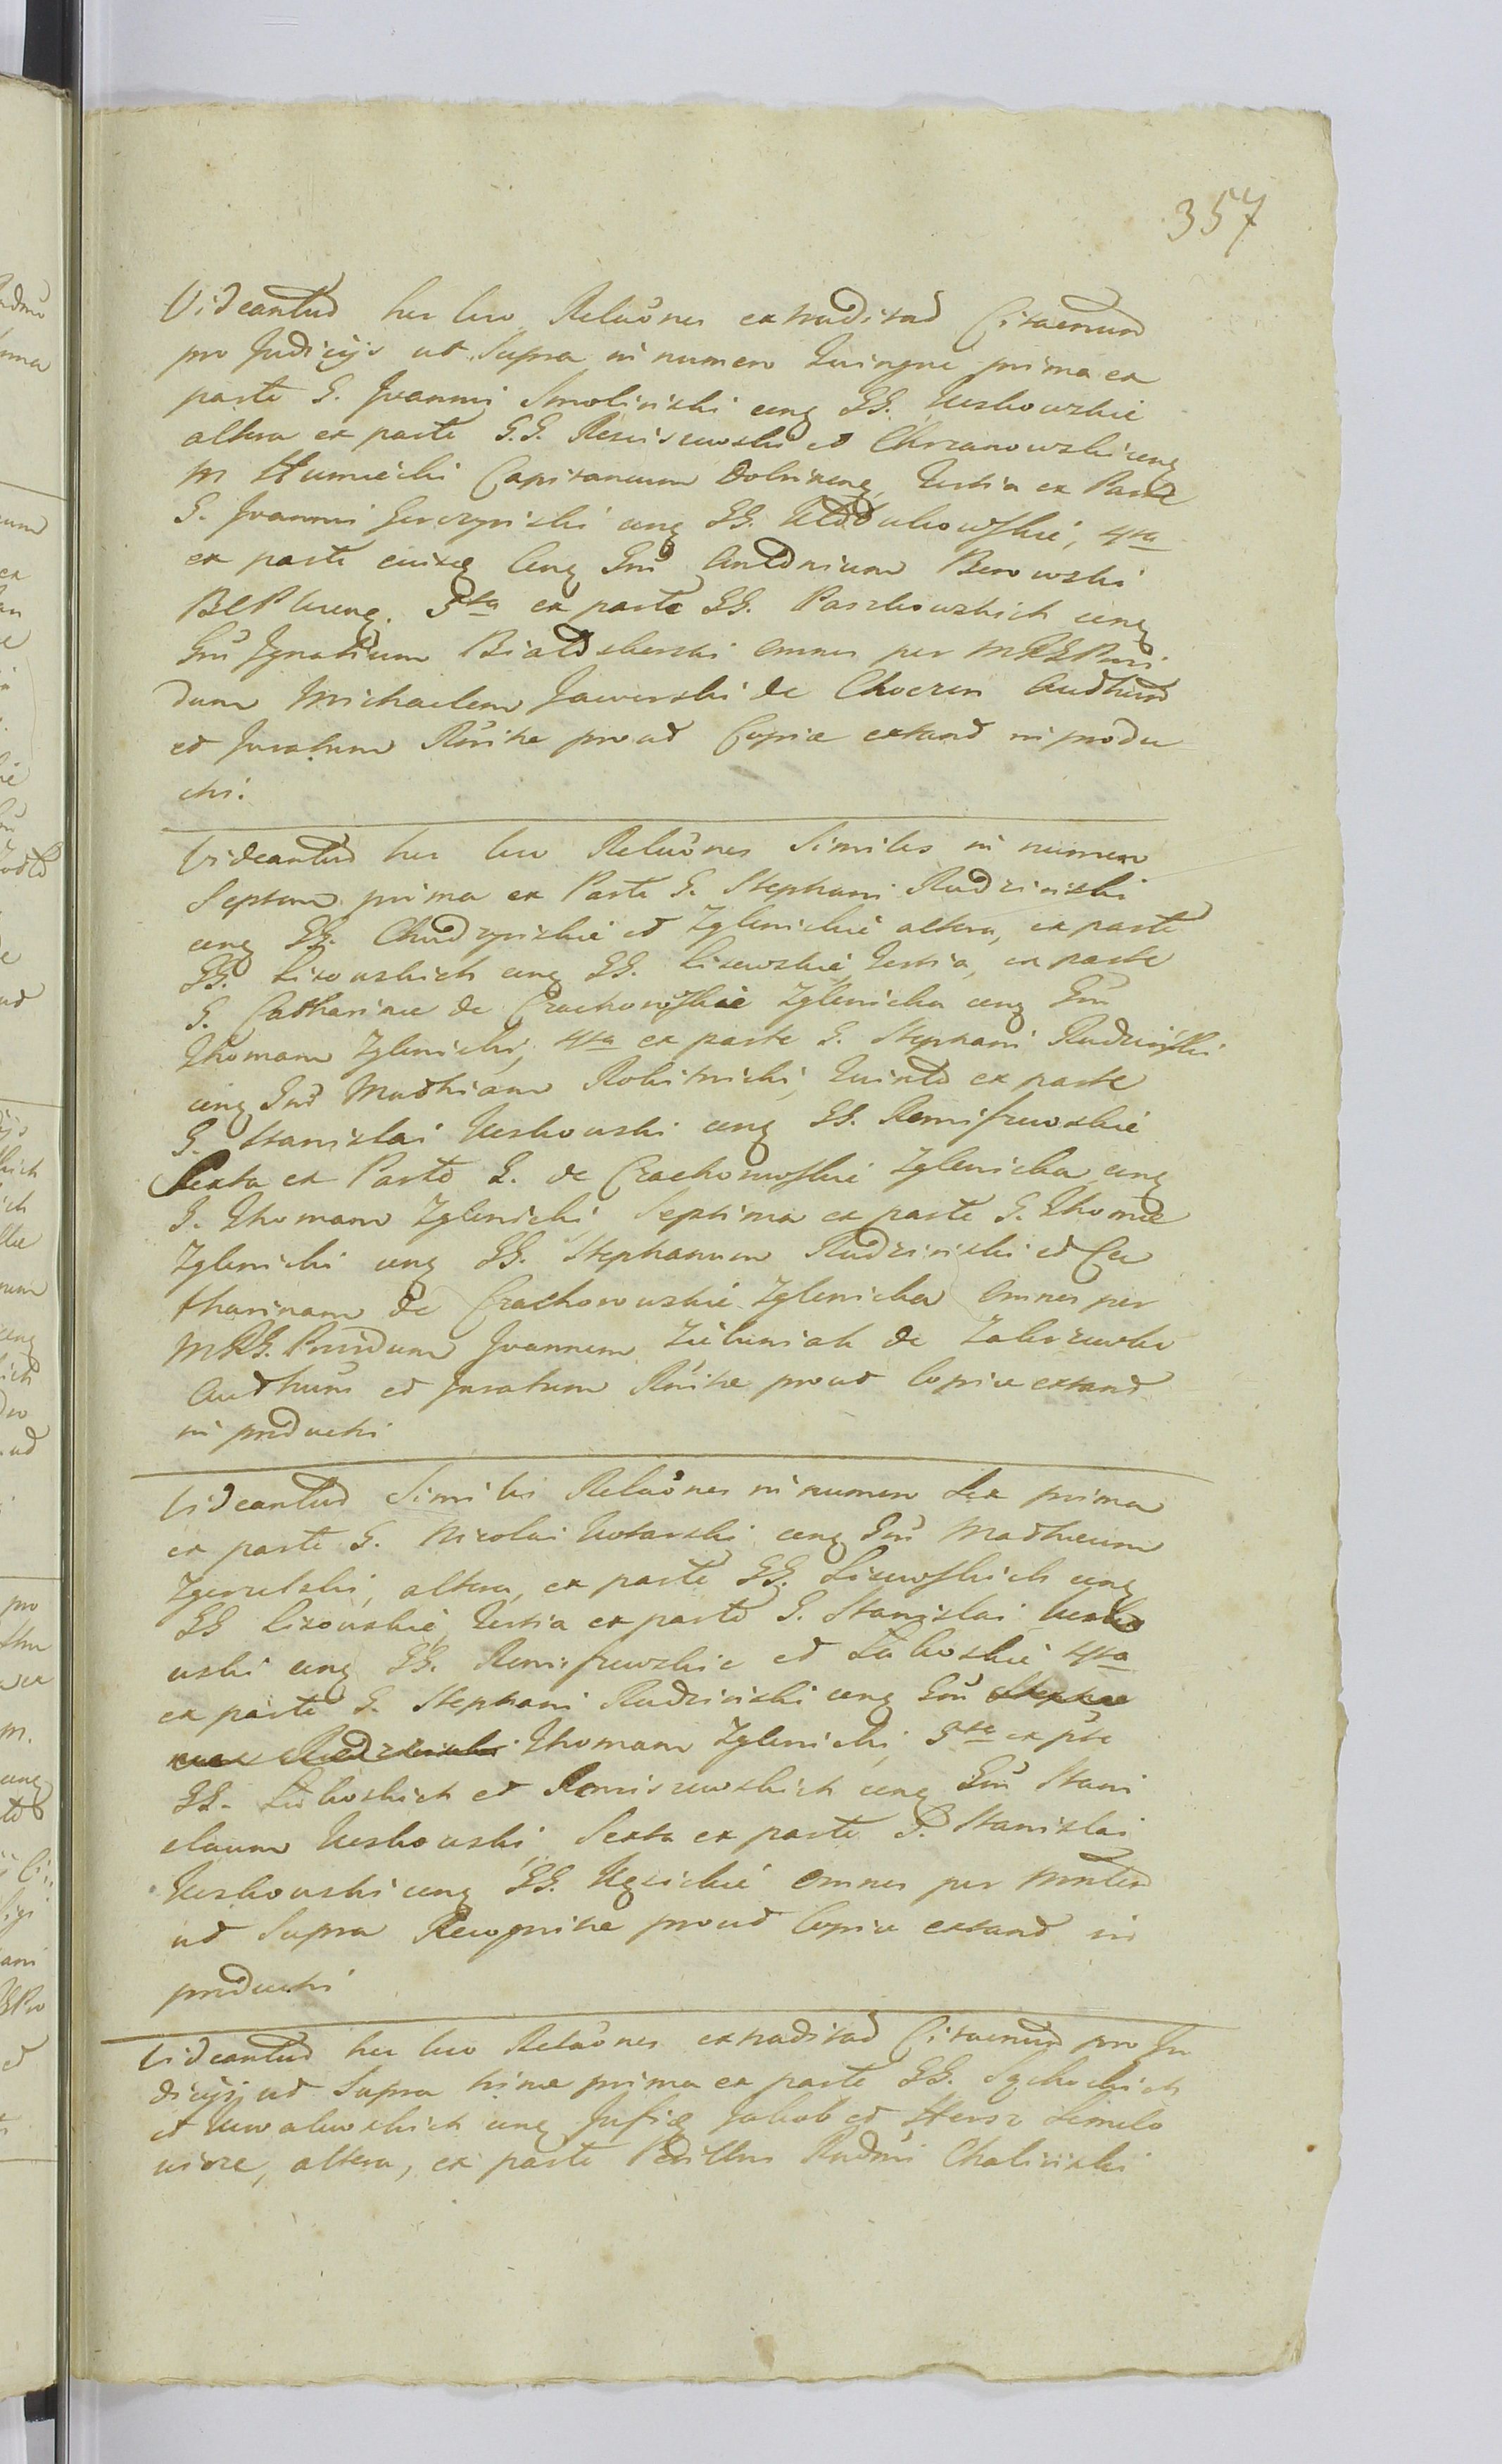 357
Videantur hic loco Relaõnes extraditar Citaonum
pro Judicijs ut Supra in numero Quinque prima ex
parte G. Joannis Smolinski cnq GG. Uszkowskie
altera ex parte G.G. Remiszewski et Chrzanowski cnq
M Humiecki Capitaneum tertia ex Parte
G. Joannis cnq GG. 4ta
ex parte eiusq Cnq Gñ Antonium Berowski
5ta ex parte GG. Paszkowskich cnq
Gñ Ignatium Białoskurski omnes per MRG Provi
dum Michaelem Jaworski de Auth
et Juratum Rñitae prout Copiae extant in produ
ctis.
Videantur hic loco Relaõnes Similes in numero
Septem prima ex Parte G. Stephani Rudzinski
cnq GG. Chudzynskie et Zglenickie altera, ex parte
GG. Lisowskich cnq GG. Lisewskie, tertia, ex parte
G. Catharinae de Crachowskie Zglenicka cnq Gñ
Thomam Zglenicki, 4ta ex parte G. Stephani Rudzinski
cnq Gñ Mathiam Rokitnicki, Quinta ex parte
G. Stanislai Uszkowski cnq GG. Remiszewskie
Sexta ex Parte G. de Crachowskie Zglenicka cnq
G. Thomam Zglenicki Septima ex parte G. Thomae
Zglenicki cnq GG. Stephanum Rudzinski et Ca
tharinam de Crachowskie Zglenicka Omnes per
MRG. Providum Joannem Zieluniak de Zalszewka
Authum et Juratum Rñitae prout Copiae extant
in productis
Videantur Similes Relaõnes in numero Sex prima
ex parte G. Nicolai Notarski cnq Gñ Mathaeum
altera, ex parte GG. Lisewskich cnq
GG Lisowskie, tertia ex parte G. Stanislai Uszko
wski cnq GG. Remiszewskie et Luboskie 4ta
ex parte G. Stephani Rudzinski cnq Gñ Stepha
num Rudzinski Thomam Zglenicki, 5ta ex pte
GG. Luboskich et Remiszewskich cnq Gñ Stani
slaum Uszkowski, Sexta ex parte G. Stanislai
Uszkowski cnq GG. omnes per Mnlem
ut Supra Recognitae prout Copiae extant in
productis
Videantur hic loco Relaõnes extraditar Citaonum pro Ju
dicijs ut Supra binae prima ex parte GG.
et cnq Infis Jakob et Hersz
altera, ex parte Perillus Rndmi Chalinski